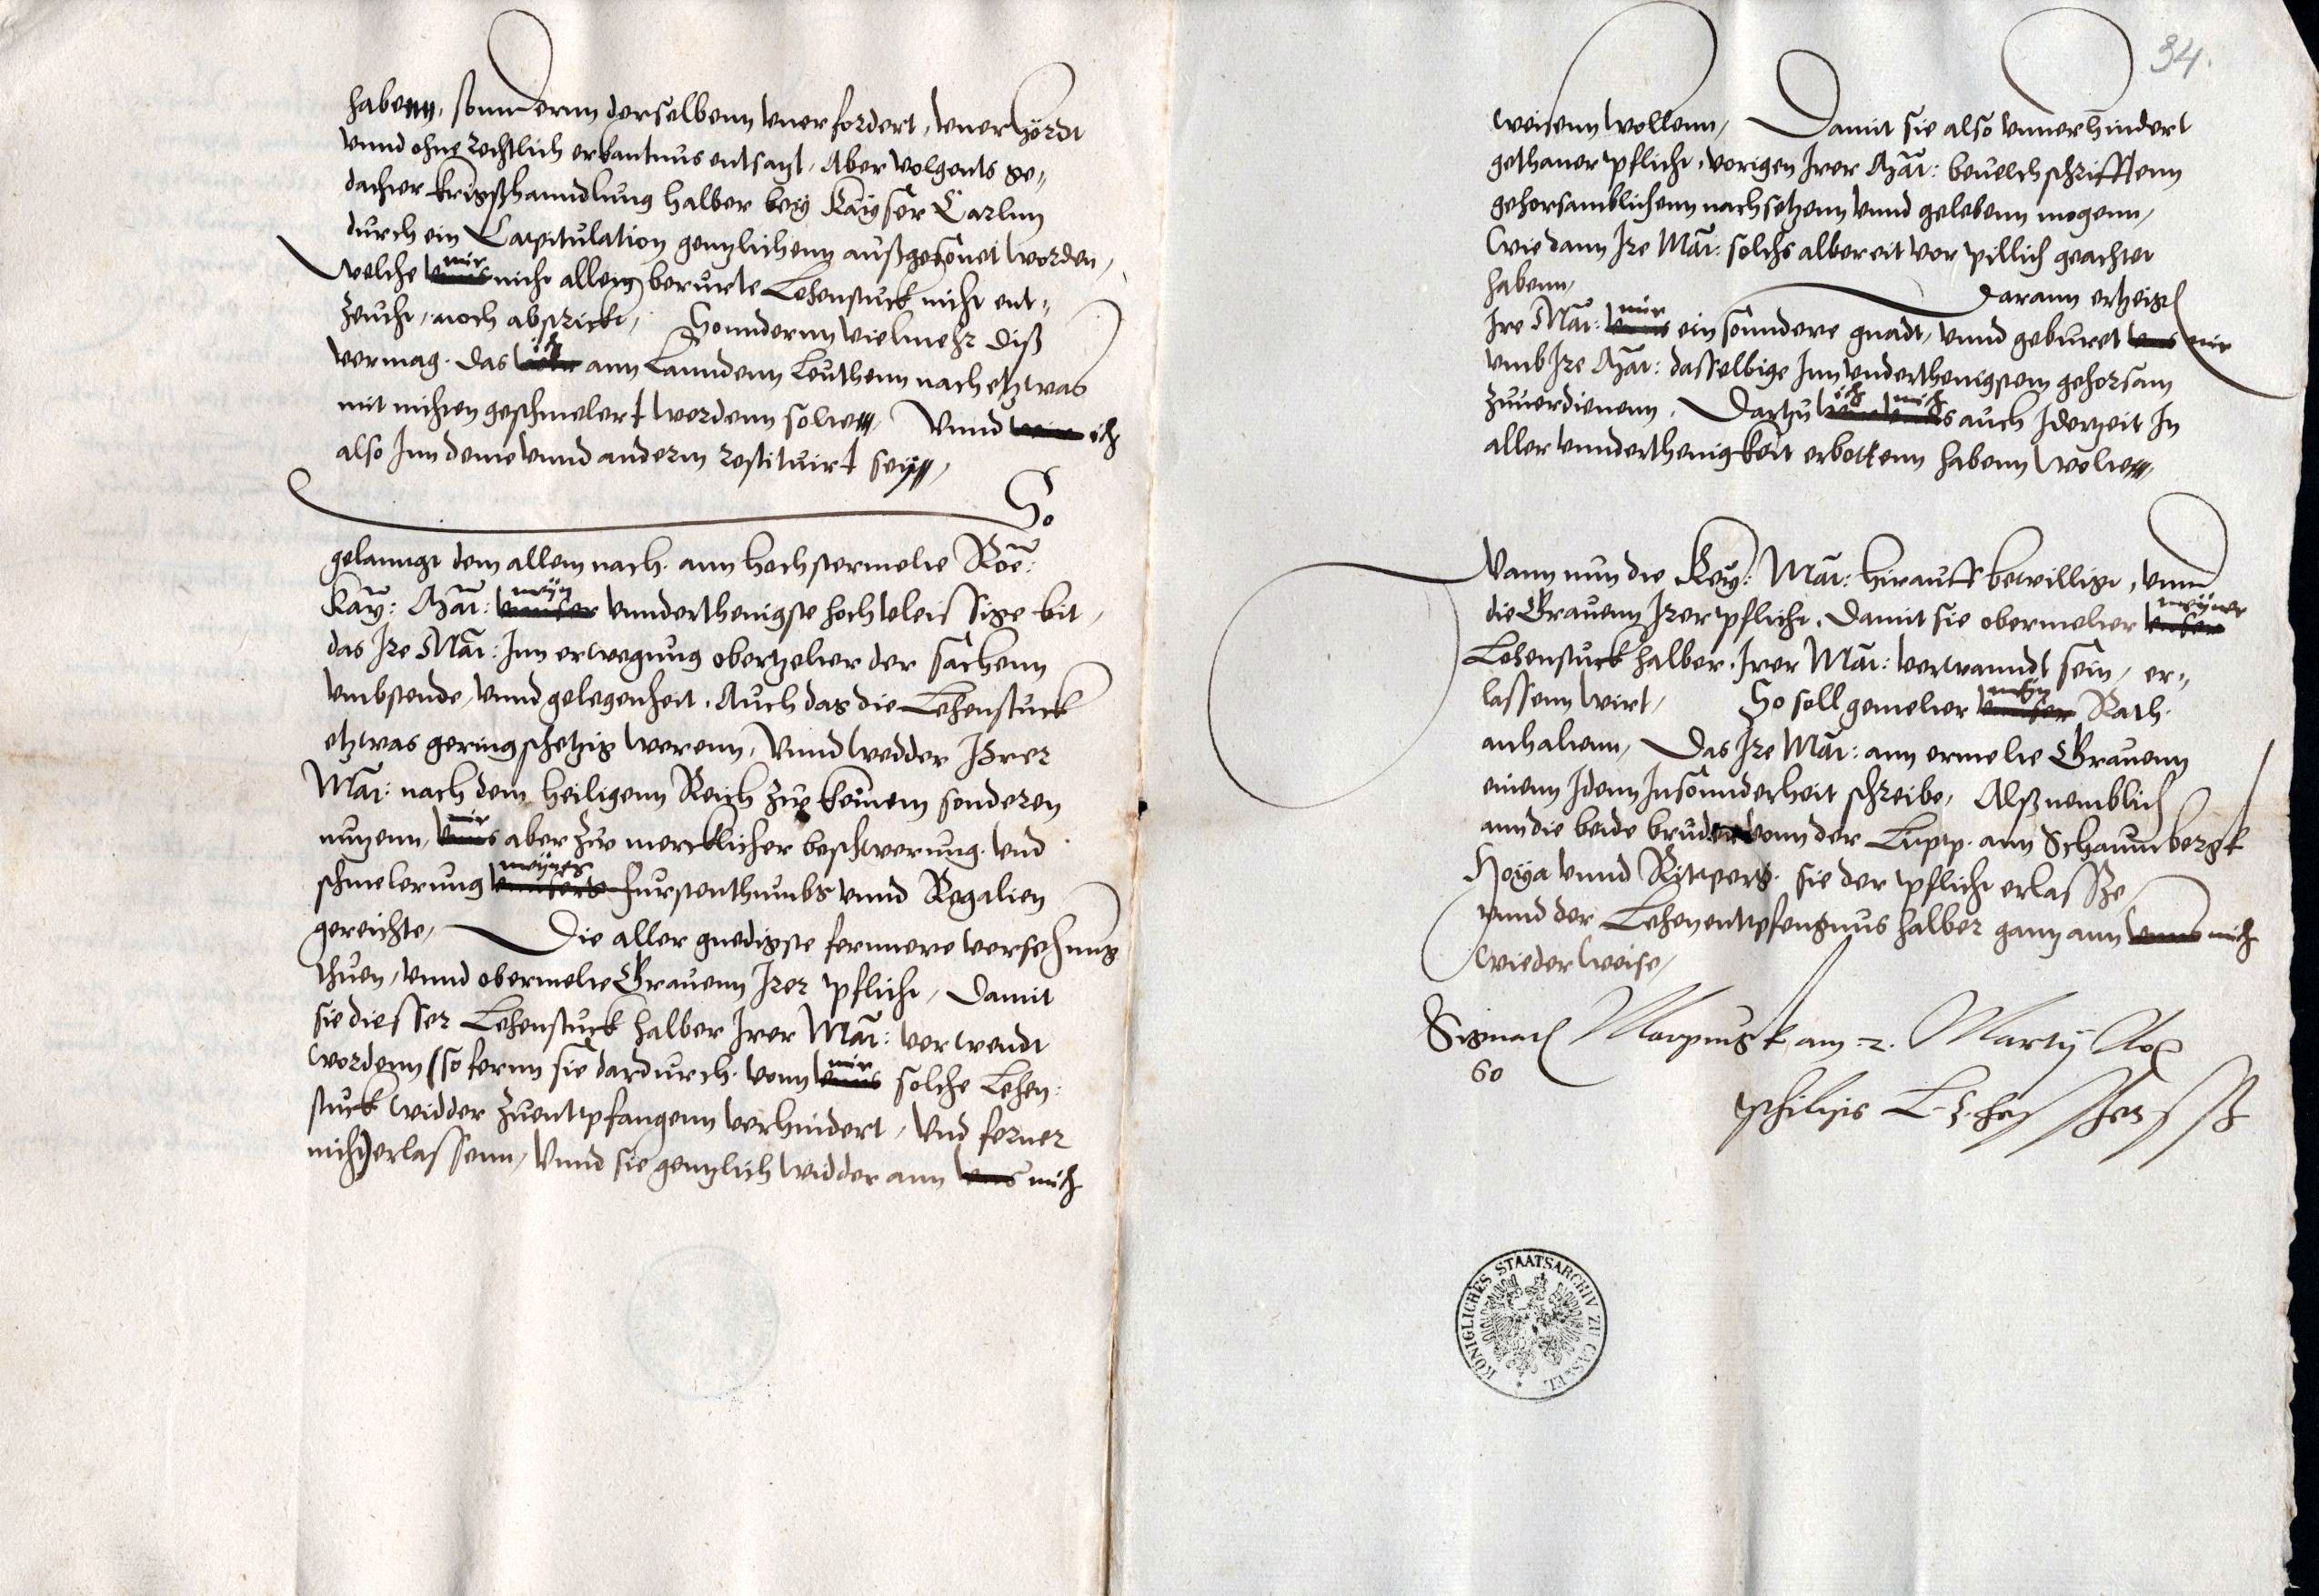 habenn, sonndernn derselbenn vnerfordert, vnerhördt
vnnd ohne rechtlich erkantnus entsatzt, Aber volgents ge„
dachter krigßhanndlung halber bey Kayser Carlnn
durch ein Capitulation gentzlichenn außgesönet worden,
mir
welche vnns nicht allein berurte Lehenstuck nicht ent„
zeucht, noch abstrickt, Sonndernn vielmehr diß
ich
vermag, das wir ann Lanndenn Leuthenn nach etzwas
mit nichten geschmelert werdenn solte, Vnnd wir ich
also Inn deme vnnd anderm restituirt sey,
So
gelanngt dem allem nach, ann hochstermelte Röe:
meyn
Kay: Mät: vnnser vnnderthenigste hochvleissige bit,
das Ire Mät: Inn erwegung obertzelter der sachenn
vmbstende, vnnd gelegenheit, Auch das die Lehenstuck
etzwas geringschetzig werenn, Vnnd wedder Ihrer
Mät: nach dem heiligenn Reich zu keinem sonderen
mir
nutzenn, vnns aber zur mercklicher beschwerung vnd
meynes
schmelerung vnnsers furstenthumbs vnnd Regalien
gereichte, Die aller gnedigste fernnere versehung
thuen, vnnd obermelte Grauenn Irer pflicht, Damit
sie diesser Lehenstuck halber Irer Mät: verwendt
mir
wordenn (so fernn sie dardurch vonn vnns solche Lehen:
stuck widder zuentpfangenn verhindert, Vnd ferner
nicht) erlassenn, Vnnd sie gentzlich widder ann vns mich
34.
weisenn wollenn, Damit sie also vnuerhindert
gethaner pflicht, vorigen Irer Mät: beuelchschrifftenn
gehorsamblichenn nachsetzenn vnnd gelebenn mogenn,
Wie dann Ire Mät: solchs albereit vor pillich geachtet
habenn,
Darann ertzeigt
mir
Ire Mät: vnns ein sonndere gnadt, vnnd geburet vns mir
vmb Ire Mät: dasselbige Inn vnderthenigstem gehorsam
ich mich
zuuerdienenn, Dartzu wir vnns auch Iderzeit In
aller vnnderthenigkeit erbottenn habenn wolte,
Wann nun die Key: Mät: hirauff bewilligt, vnnd
meyner
die Grauenn Irer pflicht, Damit sie obermelter vnser
Lehenstuck halber, Irer Mät: verwanndt sein, er„
meyn
lassenn wirt, So soll gemelter vnnser Rath
anhaltenn, Das Ire Mät: ann ermelte Grauenn
einenn Idenn Insonnderheit schreibe, Alß nemblich
ann die beide bruder vonn der Lipp, ann Schaumbergk
Hoya vnnd Ritpergk, sie der pflicht erlasße
vnnd der Lehenentpfengnus halber gantz ann vnns mich
wieder weise,
Signat Marpurgk am 2. Martij Ao
60
philips L z hessen ssz
KÖNIGLICHES STAATSARCHIV ZU CASSEL